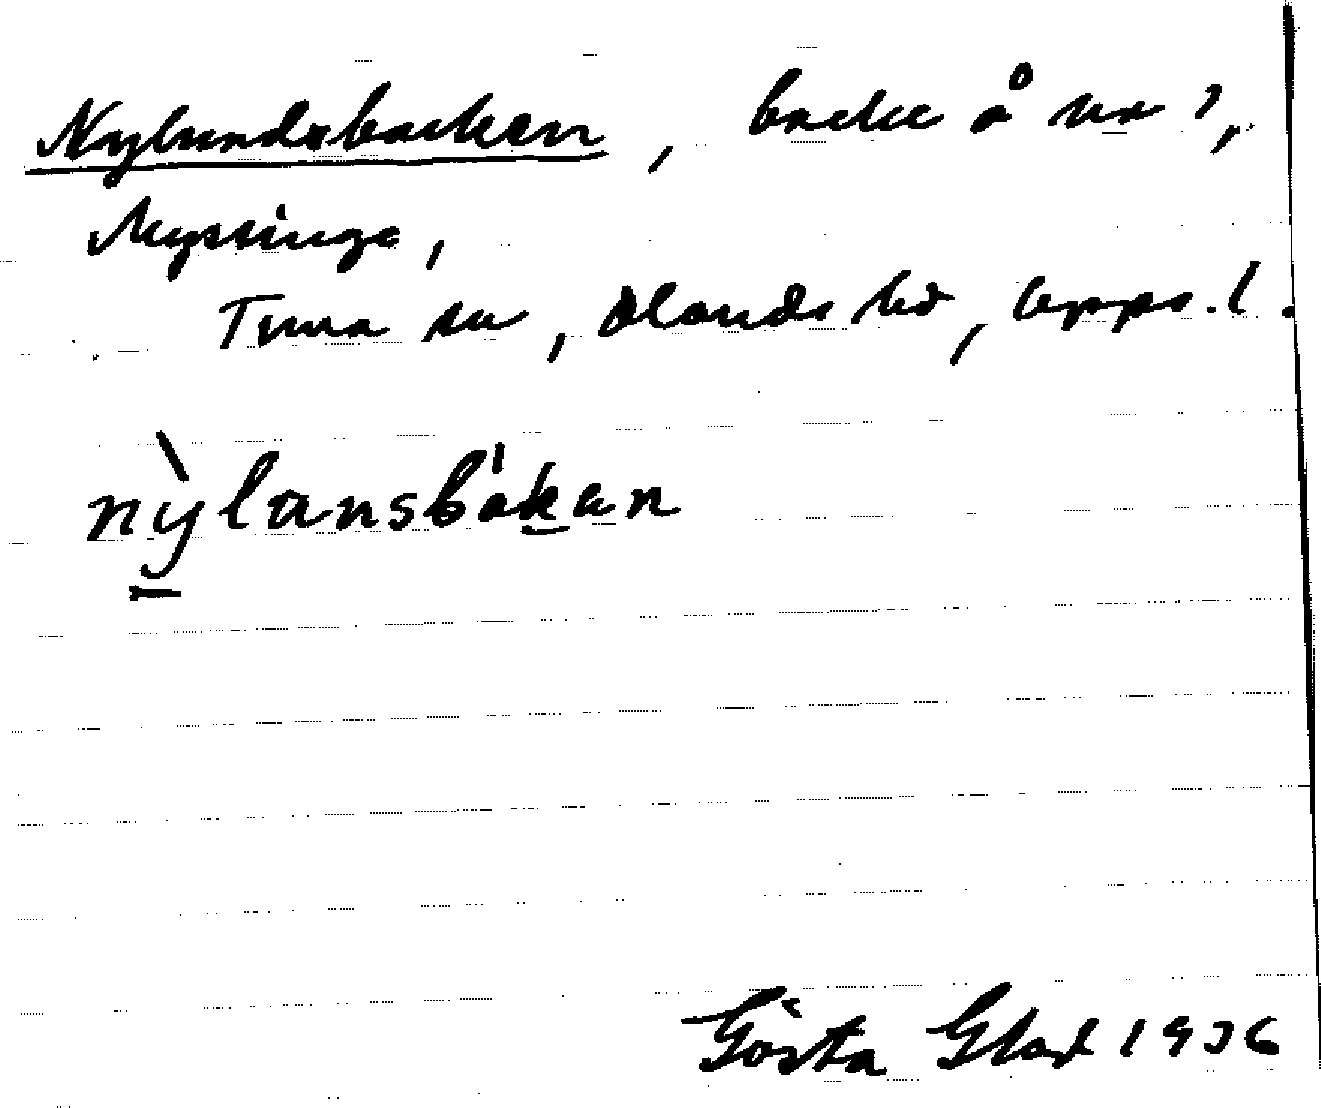 Nylundsbacken, backe å nr 1,
Myssinge,
Tuna sn, Olands hd, Upps. l.
nỳlansbákan
Gösta Glad 1936